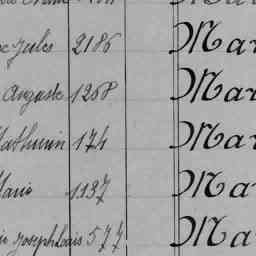 Jules 2186 Mar
Auguste 1268 Mar
Mathurin 174 Mar
Marie 1137 Ma
Joseph Louis 577 Ma